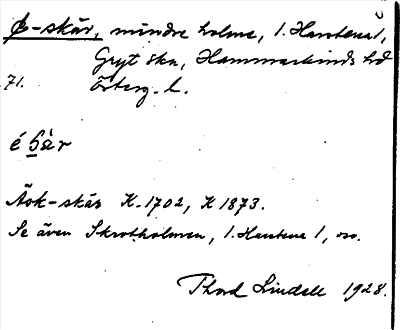 Ö-skär, mindre holme, l. Harstena 1,
Gryt skn, Hammarkinds hd
71. Österg. l.
é
Äsk-skär K. 1702, K 1873.
Se även Skrotholmen, l. Harstena 1, ovo.
Thord Lindell 1928.